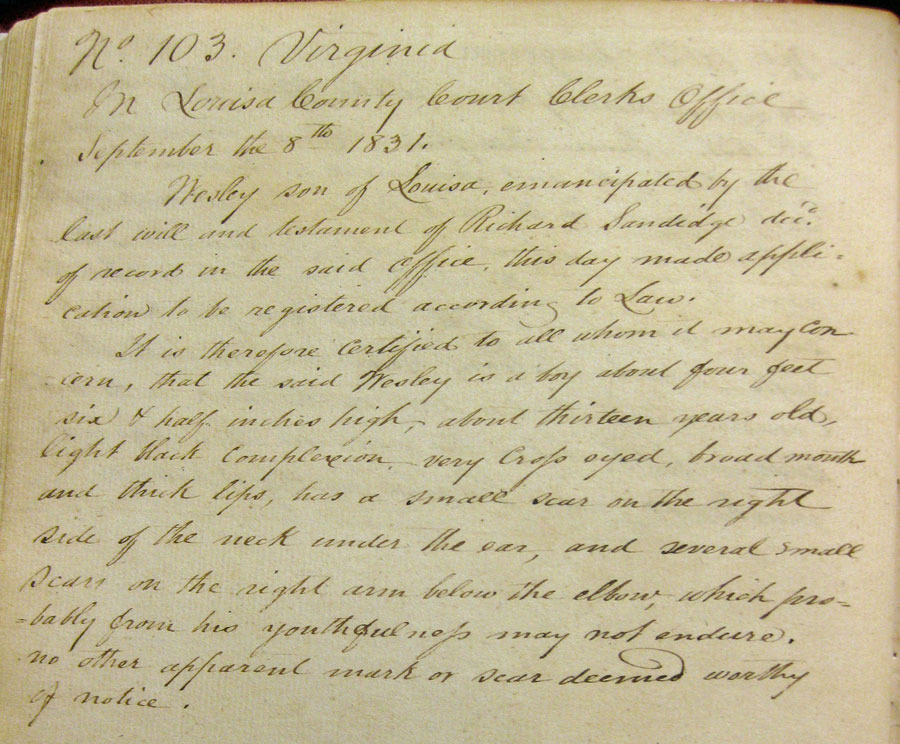 No. 103. Virginia
In Louisa County Court Clerks Office
September the 8th 1831.
Wesley son of Louisa, emancipated by the
last will and testament of Richard Sandidge decd.
of record in the said office, this day made appli-
cation to be registered according to Law.
It is therefore Certified to all whom it may Con
cern, that the said Wesley is a boy about four feet
six & half inches high, about thirteen years old,
light black Complexion, very Cross eyed, broad mouth
and thick lips, has a small scar on the right
side of the neck under the ear, and several small
scars on the right arm below the elbow, which pro-
-bably from his youthfulness may not endure.
no other apparent mark or scar deemed worthy
of notice.